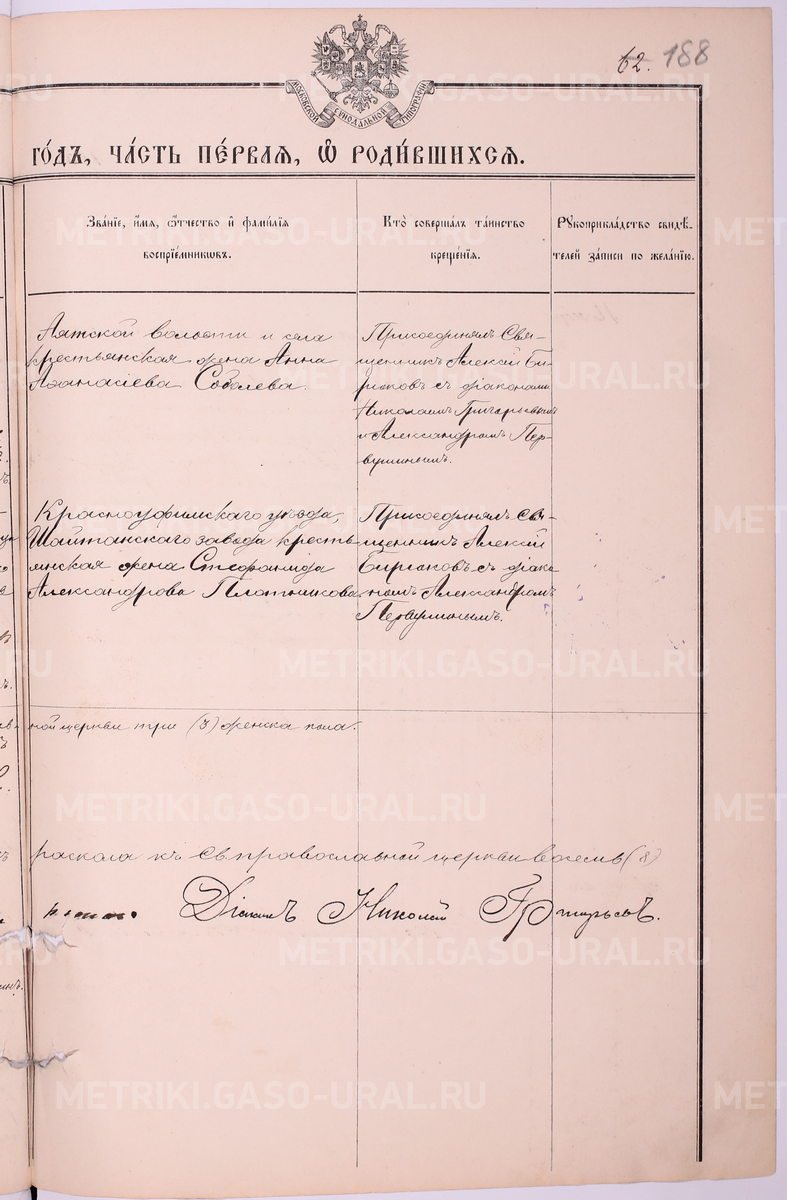 62. 188
МОСКОВСКОЙ СѴНОДАЛЬНОЙ ТИПОГРАФІИ
ГО́ДЪ, ЧА́СТЬ ПЕ́РВАѦ, Ѡ҆ РОДИ́ВШИХСѦ.
Зва́нїе, и҆́мѧ, ѻ҆́тчество и҆ фами́лїѧ
воспрїе́мникѡвъ.
Кто̀ соверша́лъ та́инство
креще́нїѧ.
Рꙋкоприкла́дство свидѣ́-
телей за́писи по жела́нїю.
Аятской волости и села
крестьянская жена Анна
Аѳанасіева Соболева.
Присоединялъ Свя-
щенникъ Алексій Би-
рюковъ съ діаконами
Николаемъ Григорьевымъ
и Александромъ Пер-
вушинымъ.
Красноуфимскаго уѣзда,
Шайтанскаго завода кресть-
янская жена Стефанида
Александрова Плотникова
Присоединялъ Свя-
щенникъ Алексій
Бирюковъ съ діако-
номъ Александромъ
Первушинымъ.
ной церкви три (3) женска пола.
раскола къ св. православной церкви восемь (8)
Діаконъ Николай Григорьевъ.
METRIKI.GASO-URAL.RU